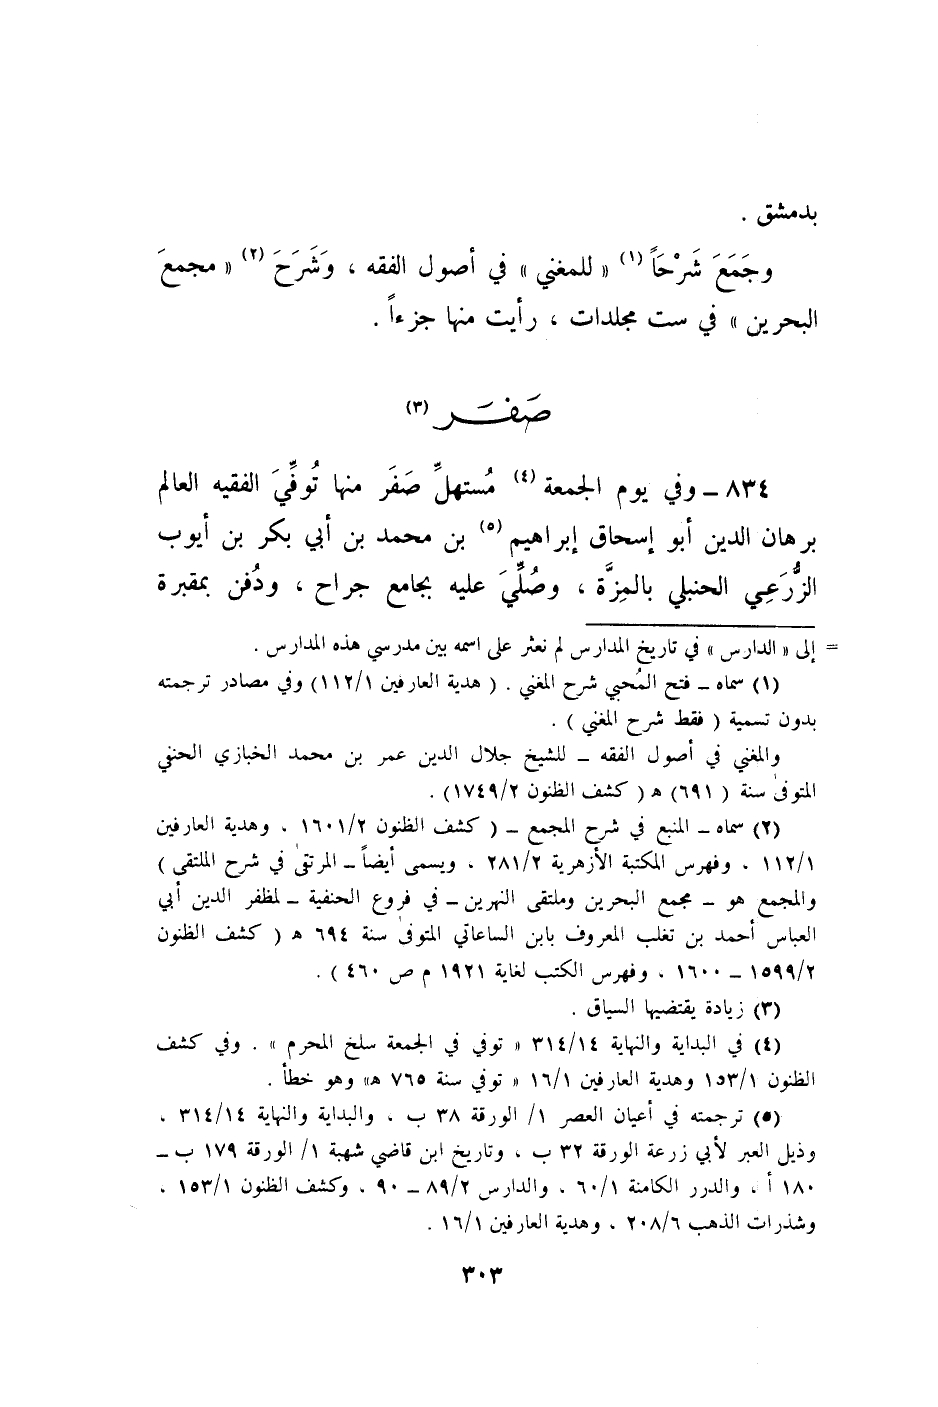 بدمشق .
وجَمَعَ شَرْحَاً (١) « للمغني » في أصول الفقه ، وَشَرَحَ (٢) « مجمعَ
البحرين » في ست مجلدات ، رأيت منها جزءاً .
صَفَـــر (٣)
٨٣٤ ـ وفي يوم الجمعة (٤) مُستهلِّ صَفَر منها تُوفِّيَ الفقيه العالم
برهان الدين أبو إسحاق إبراهيم (٥) بن محمد بن أبي بكر بن أيوب
الزُّرَعِي الحنبلي بالمِزَّة ، وصُلِّيَ عليه بجامع جراح ، ودُفن بمقبرة
= إلى « الدارس » في تاريخ المدارس لم نعثر على اسمه بين مدرسي هذه المدارس .
(١) سماه ـ فتح المُحبي شرح المغني . ( هدية العارفين ١١٢/١) وفي مصادر ترجمته
بدون تسمية ( فقط شرح المغني ) .
والمغني في أصول الفقه ـ للشيخ جلال الدين عمر بن محمد الخبازي الحنفي
المتوفىٰ سنة ( ٦٩١) هـ ( كشف الظنون ١٧٤٩/٢) .
(٢) سماه ـ المنبع في شرح المجمع ـ ( كشف الظنون ١٦٠١/٢ ، وهدية العارفين
١١٢/١ ، وفهرس المكتبة الأزهرية ٢٨١/٢ ، ويسمى أيضاً ـ المرتقىٰ في شرح الملتقى )
والمجمع هو ـ مجمع البحرين وملتقى النهرين ـ في فروع الحنفية ـ لمظفر الدين أبي
العباس أحمد بن تغلب المعروف بابن الساعاتي المتوفىٰ سنة ٦٩٤ هـ ( كشف الظنون
١٥٩٩/٢ ـ ١٦٠٠ ، وفهرس الكتب لغاية ١٩٢١ م ص ٤٦٠ ) .
(٣) زيادة يقتضيها السياق .
(٤) في البداية والنهاية ٣١٤/١٤ « توفي في الجمعة سلخ المحرم » . وفي كشف
الظنون ١٥٣/١ وهدية العارفين ١٦/١ « توفي سنة ٧٦٥ هـ» وهو خطأ .
(٥) ترجمته في أعيان العصر ١/ الورقة ٣٨ ب ، والبداية والنهاية ٣١٤/١٤ ،
وذيل العبر لأبي زرعة الورقة ٣٢ ب ، وتاريخ ابن قاضي شهبة ١/ الورقة ١٧٩ ب ـ
١٨٠ أ ، والدرر الكامنة ٦٠/١ ، والدارس ٨٩/٢ ـ ٩٠ ، وكشف الظنون ١٥٣/١ ،
وشذرات الذهب ٢٠٨/٦ ، وهدية العارفين ١٦/١ .
٣٠٣